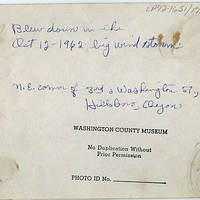 LP92-1651/
Blew down in the
Oct 12-1962 big wind storm
N.E. corner of 3rd & Washington St,
Hillsboro, Oregon
WASHINGTON COUNTY MUSEUM
No Duplication Without
Prior Permission
PHOTO ID No.